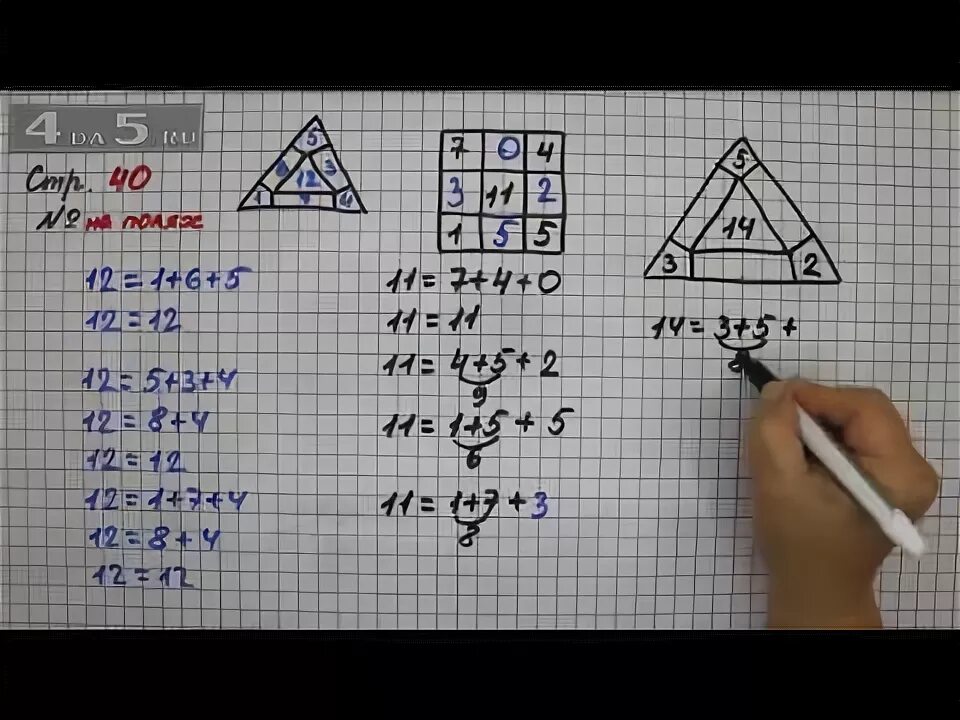 4 DA 5 .RU
Стр. 40
№ на полях
5
6 3
12
1 7 4
7 0 4
3 11 2
1 5 5
5
14
3 2
12=1+6+5
12=12
12=5+3+4
12=8+4
12=12
12=1+7+4
12=8+4
12=12
11=7+4+0
11=11
11=4+5+2
9
11=1+5+5
6
11=1+7+3
8
14=3+5+
8